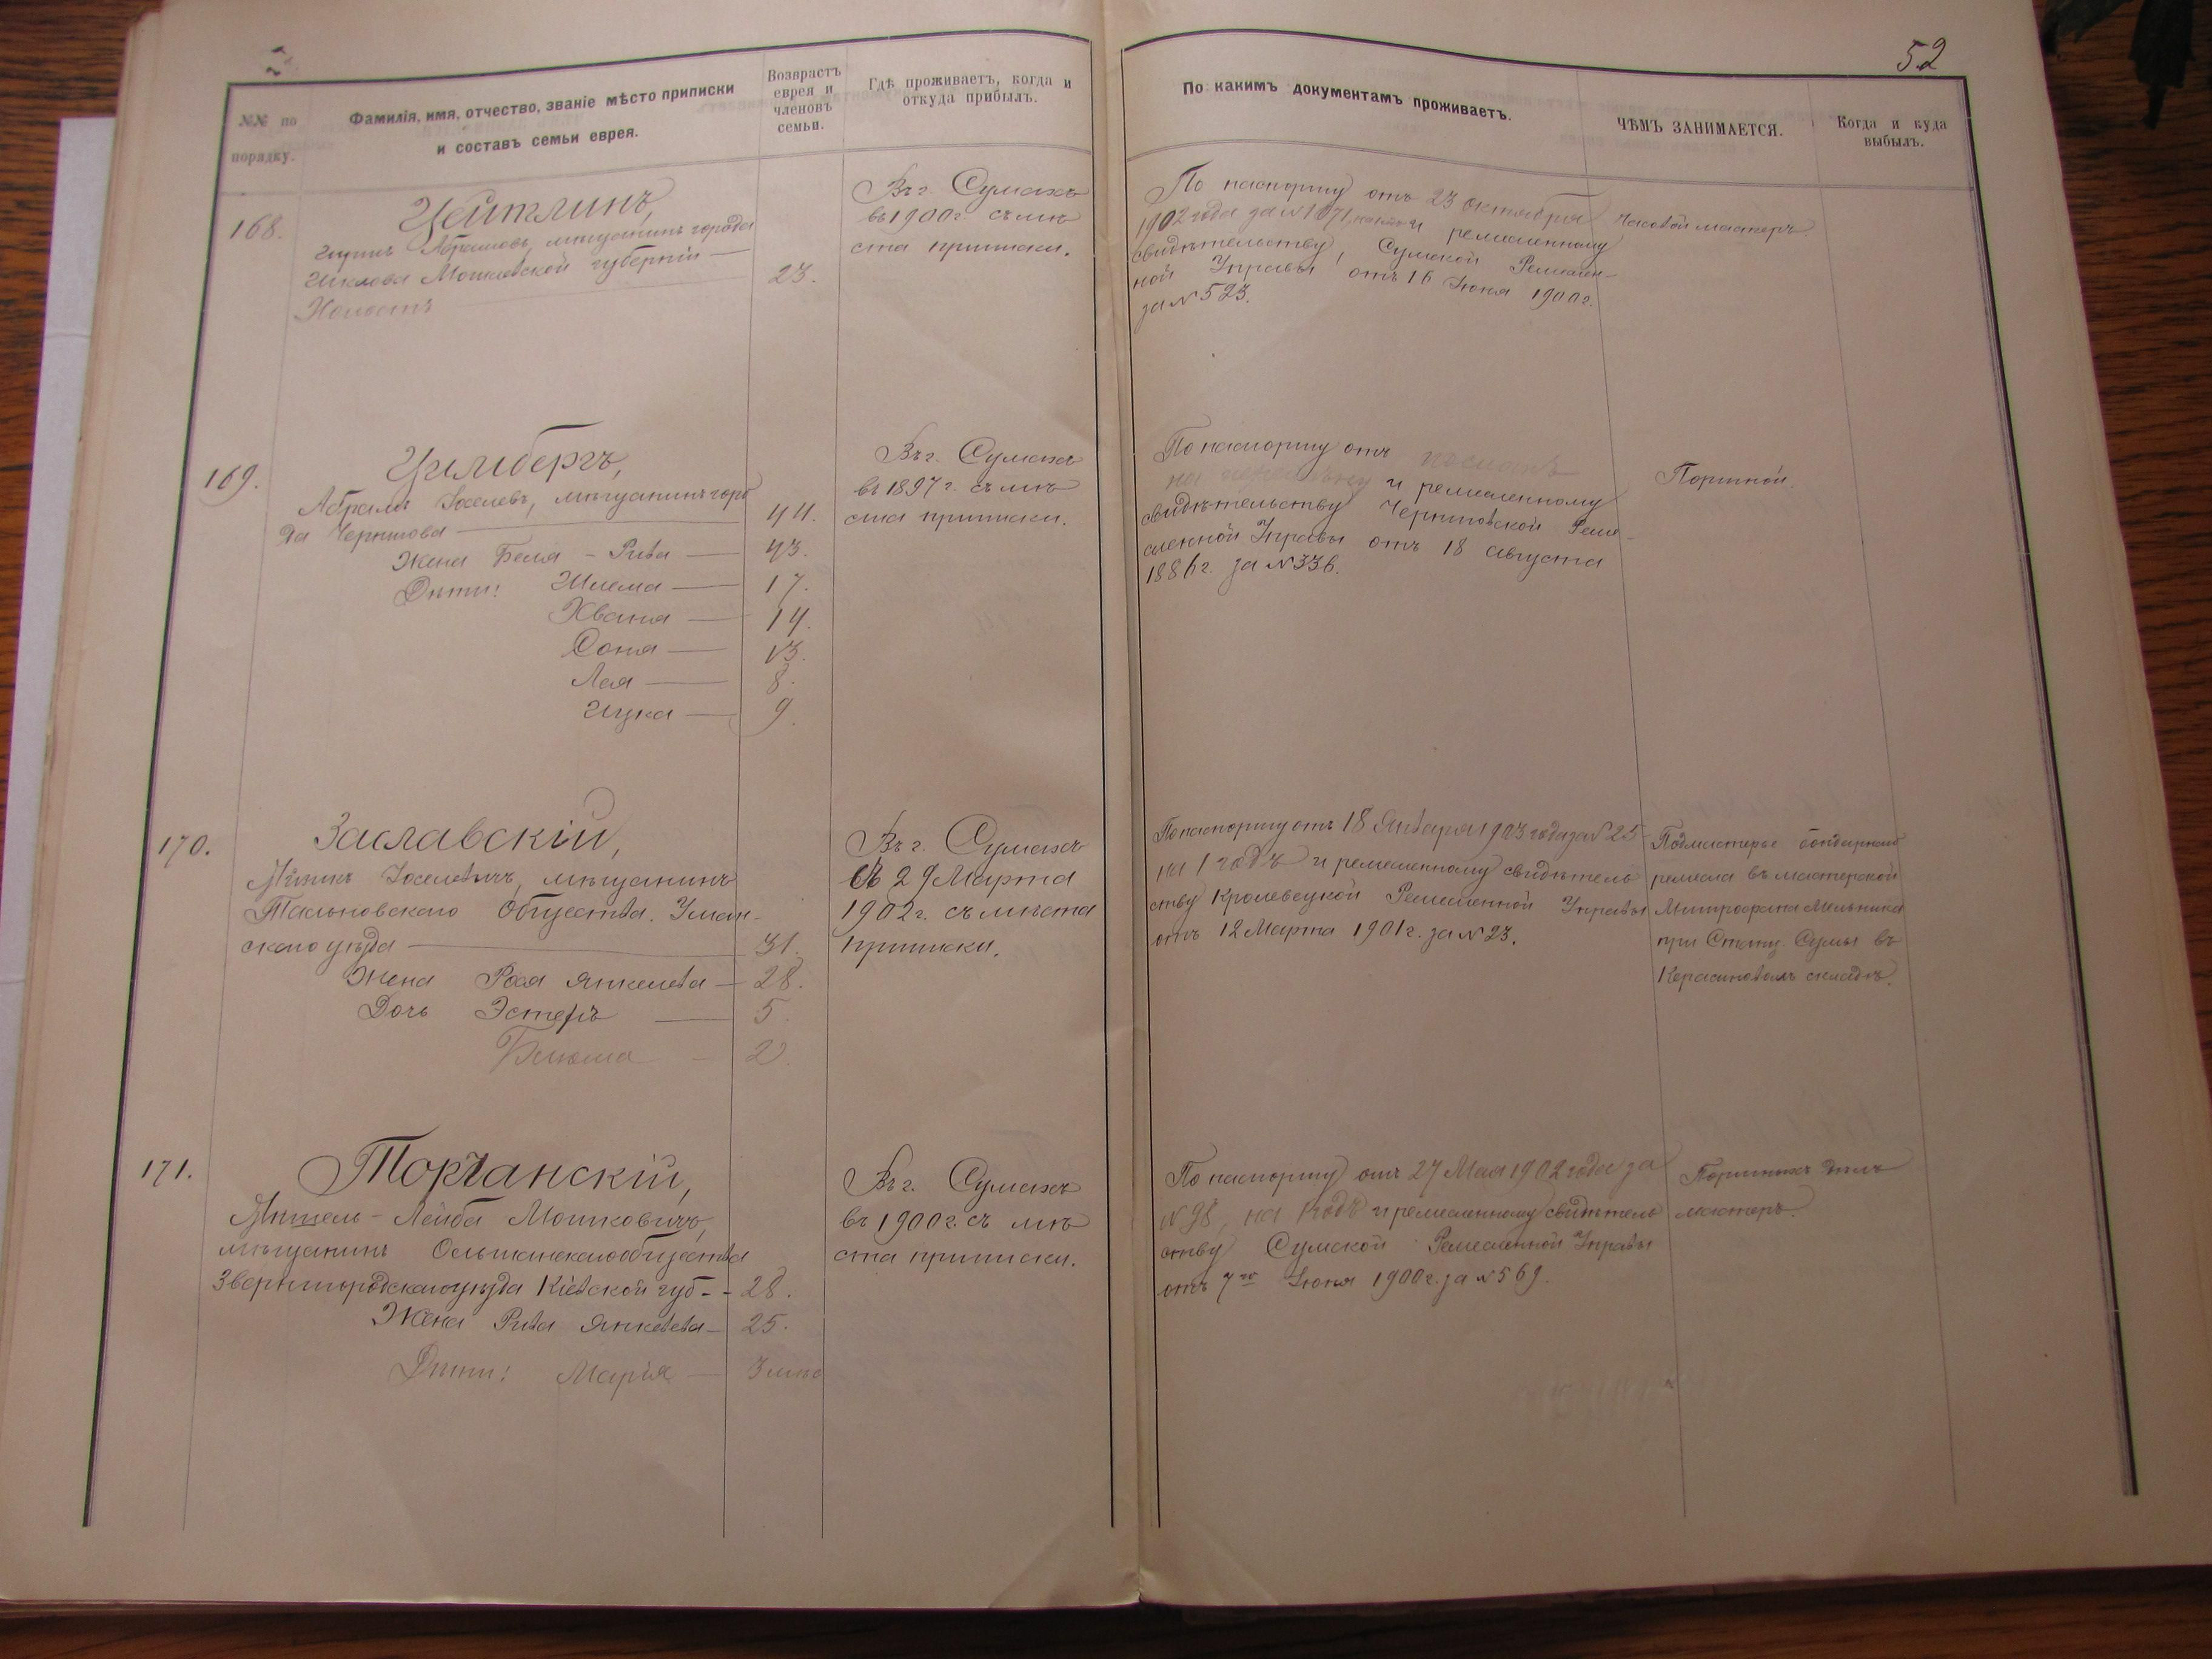 52
№№ по порядку.
Фамилія, имя, отчество, званіе мѣсто приписки
и составъ семьи еврея.
Возврастъ
еврея и
членовъ
семьи.
Гдѣ проживаетъ, когда и
откуда прибылъ.
По какимъ документамъ проживаетъ.
ЧѢМЪ ЗАНИМАЕТСЯ.
Когда и куда
выбылъ.
168.
Цейтлинъ,
Абрамовъ, мѣщанинъ города
Шклова Могилевской губерніи
Холостъ
23.
Въ г. Сумахъ
въ 1900 г. съ мѣ
ста приписки.
По паспорту отъ 23 Октября
1902 года за № 1071, и ремесленному
свидѣтельству, Сумской Ремеслен-
ной Управы отъ 16 Іюня 1900 г.
за № 523.
Часовой мастеръ.
169.
Цимбергъ,
Абрамъ Іоселевъ, мѣщанинъ горо
да Чернигова
44.
Жена Беля - Рива
43.
Дѣти: Шлема
17.
Хвания
14.
Соня
13.
Лея
8.
Ицка
9.
Въ г. Сумахъ
въ 1897 г. съ мѣ
ста приписки.
По паспорту отъ
и ремесленному
свидѣтельству Черниговской Реме-
сленной Управы отъ 18 августа
1886 г. за № 336.
Портной.
170.
Заславскій,
Іоселевичъ, мѣщанинъ
Тальновскаго Общества. Уман-
скаго уѣзда
31.
Жена Рося Янкелева
28.
Дочь Эстеръ
5.
Блюма
2.
Въ г. Сумахъ
съ 29 Марта
1902 г. съ мѣста
приписки.
По паспорту отъ 18 Января 1903 года за № 25
на 1 годъ и ремесленному свидѣтель
ству Кролевецкой Ремесленной Управы
отъ 12 Марта 1901 г. за № 23.
Подмастерье бондарнаго
ремесла въ мастерской
Митрофана Мельника
при Станц. Сумы въ
Керасиновомъ складѣ.
171.
Торчанскій,
Лейба Мошковичъ,
мѣщанинъ Ольшанскаго общества
Звенигородскаго уѣзда Кіевской губ - -
28.
Жена Рива Янкелева
25.
Дѣти: Марія
3 мѣс
Въ г. Сумахъ
въ 1900 г. съ мѣ
ста приписки.
По паспорту отъ 27 Мая 1902 года за
№ 98, на 1 годъ и ремесленному свидѣтель
ству Сумской Ремесленной Управы
отъ 7го Іюня 1900 г. за № 569.
Портныхъ дѣлъ
мастеръ.